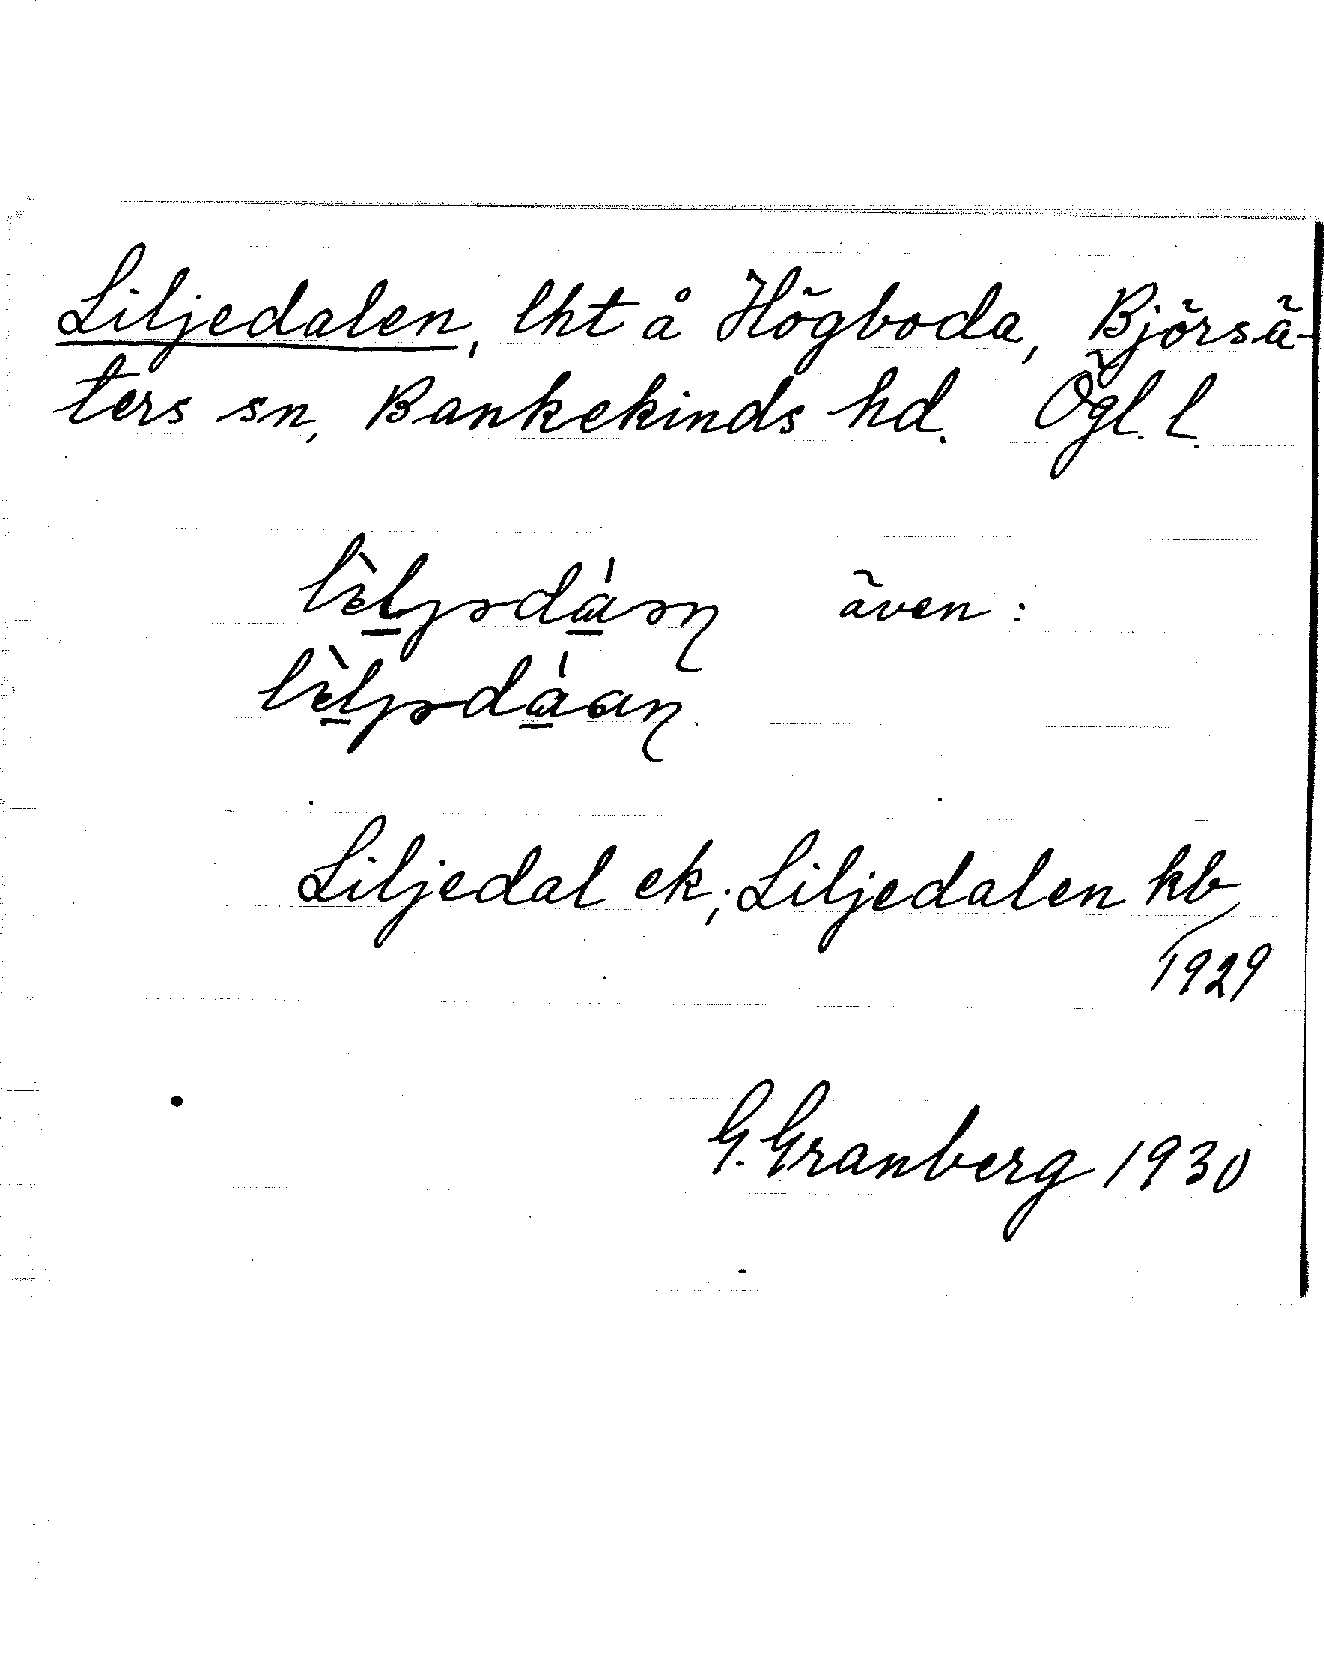 Liljedalen, lht å Högboda, Björsä-
ters sn, Bankekinds hd. Ögl. l.
även:
Liljedal ek; Liljedalen kb
1929
G. Granberg 1930